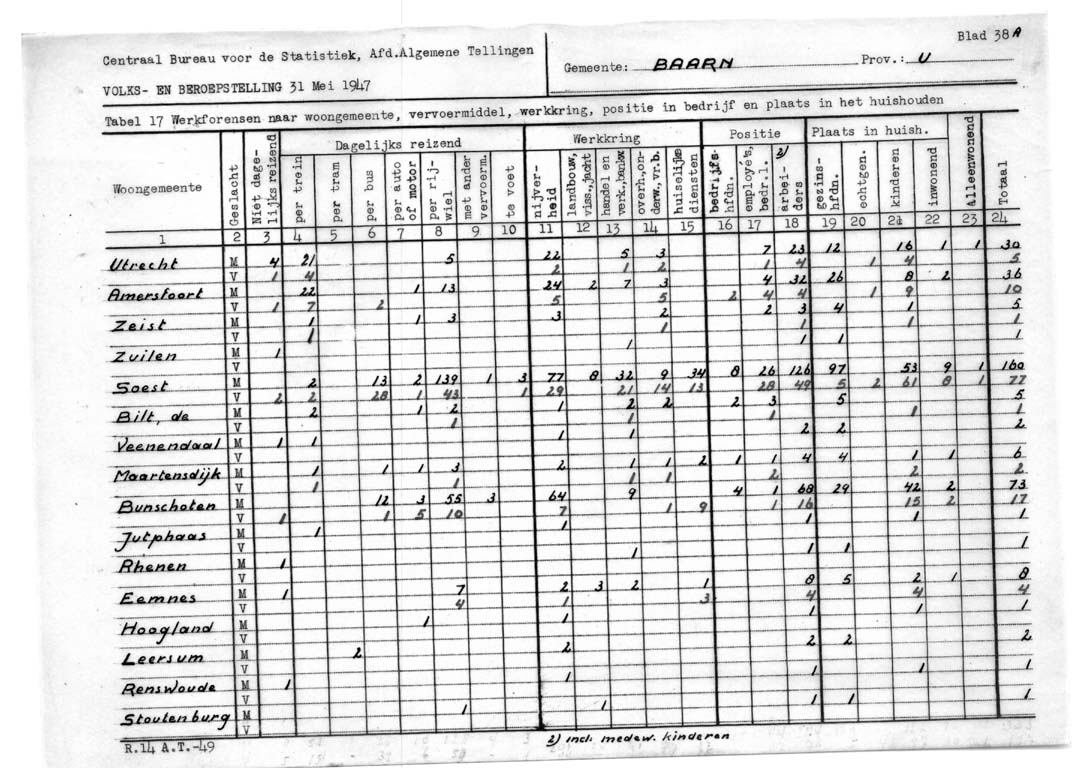 Blad 38A
Centraal Bureau voor de Statistiek, Afd.Algemene Tellingen
Gemeente: BAARN Prov.: U
VOLKS- EN BEROEPSTELLING 31 Mei 1947
Tabel 17 Werkforensen naar woongemeente, vervoermiddel, werkkring, positie in bedrijf en plaats in het huishouden
Woongemeente Geslacht Niet dagelijks reizend Dagelijks reizend Werkkring Positie 2) Plaats in huish. Alleenwonend Totaal
per trein per tram per bus per auto of motor per rijwiel met ander vervoerm. te voet nijverheid landbouw, viss.,jacht handel en verk.,bankw. overh.,onderw.,vr.b. huiselijke diensten bedrijfshfdn. employé's, bedr.l. arbeiders gezinshfdn. echtgen. kinderen inwonend
1 2 3 4 5 6 7 8 9 10 11 12 13 14 15 16 17 18 19 20 21 22 23 24
Utrecht M 4 21 5 22 5 3 7 23 12 16 1 1 30
V 1 4 2 1 2 1 4 1 4 5
Amersfoort M 22 1 13 24 2 7 3 4 32 26 8 2 36
V 1 7 2 5 5 2 4 4 1 9 10
Zeist M 1 1 3 3 2 2 3 4 1 5
V 1 1 1 1 1
Zuilen M 1 1 1 1 1
V
Soest M 2 13 2 139 1 3 77 8 32 9 34 8 26 126 97 53 9 1 160
V 2 2 28 1 43 1 29 21 14 13 28 49 5 2 61 8 1 77
Bilt, de M 2 1 2 1 2 2 2 3 5 5
V 1 1 1 1 1
Veenendaal M 1 1 1 1 2 2 2
V
Maartensdijk M 1 1 1 3 2 1 1 2 1 1 4 4 1 1 6
V 1 1 1 1 2 2 2
Bunschoten M 12 3 55 3 64 9 4 1 68 29 42 2 73
V 1 1 5 10 7 1 9 1 16 15 2 17
Jutphaas M 1 1 1 1 1
V
Rhenen M 1 1 1 1 1
V
Eemnes M 1 7 2 3 2 1 8 5 2 1 8
V 4 1 3 4 4 4
Hoogland M 1 1 1 1 1
V
Leersum M 2 2 2 2 2
V
Renswoude M 1 1 1 1 1
V
Stoutenburg M 1 1 1 1 1
V
R.14 A.T.-49
2) incl. medew. kinderen